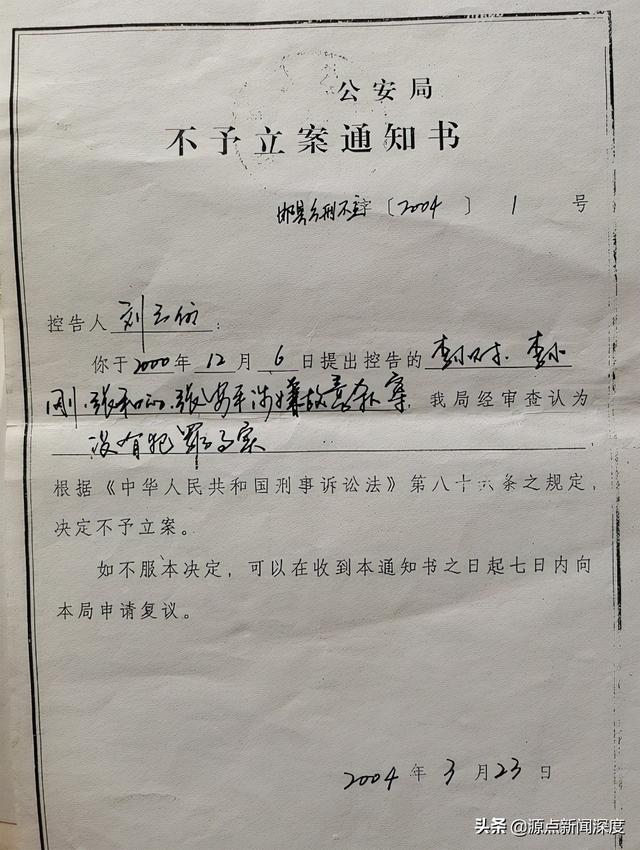 公安局
不予立案通知书
邯县公刑不立字〔2004〕1号
控告人刘云俭:
你于2000年12月6日提出控告的李小
刚、张和、张安平涉嫌故意杀人案,我局经审查认为
没有犯罪事实
根据《中华人民共和国刑事诉讼法》第八十六条之规定,
决定不予立案。
如不服本决定,可以在收到本通知书之日起七日内向
本局申请复议。
2004年3月23日
头条@源点新闻深度